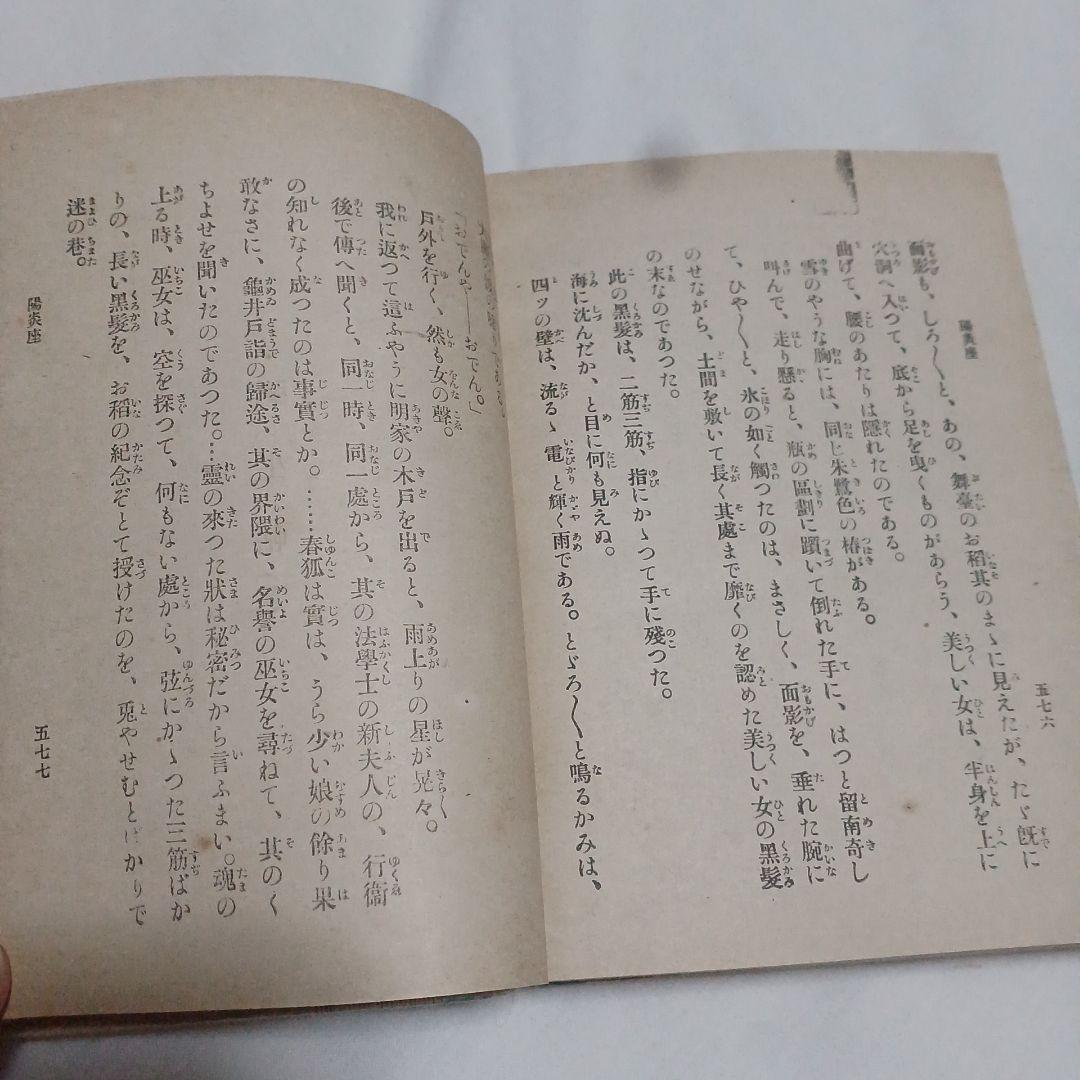 陽炎座
五七六
面影も、しろ〳〵と、あの、舞臺のお稻其のまゝに見えたが、たゞ旣に
穴洞へ入つて、底から足を曳くものがあらう、美しい女は、半身を上に
曲げて、腰のあたりは隱れたのである。
雪のやうな胸には、同じ朱鷺色の椿がある。
叫んで、走り懸ると、瓶の區劃に躓いて倒れた手に、はつと留南奇し
て、ひや〳〵と、氷の如く觸つたのは、まさしく、面影を、垂れた腕に
のせながら、土間を敷いて長く其處まで靡くのを認めた美しい女の黑髮
の末なのであつた。
此の黑髮は、二筋三筋、指にかゝつて手に殘つた。
海に沈んだか、と目に何も見えぬ。
四ツの壁は、流るゝ電と輝く雨である。とゞろ〳〵と鳴るかみは、
「おでんやーーおでん。」
戶外を行く、然も女の聲。
我に返つて這ふやうに明家の木戶を出ると、雨上りの星が晃々。
後で傳へ聞くと、同一時、同一處から、其の法學士の新夫人の、行衞
の知れなく成つたのは事實とか。……春狐は實は、うら少い娘の餘り果
敢なさに、龜井戶詣の歸途、其の界隈に、名譽の巫女を尋ねて、其のく
ちよせを聞いたのであつた……靈の來つた狀は秘密だから言ふまい。魂の
上る時、巫女は、空を探つて、何もない處から、弦にかゝつた三筋ばか
りの、長い黑髮を、お稻の紀念ぞとて授けたのを、兎やせむとばかりで
迷の巷。
陽炎座
五七七